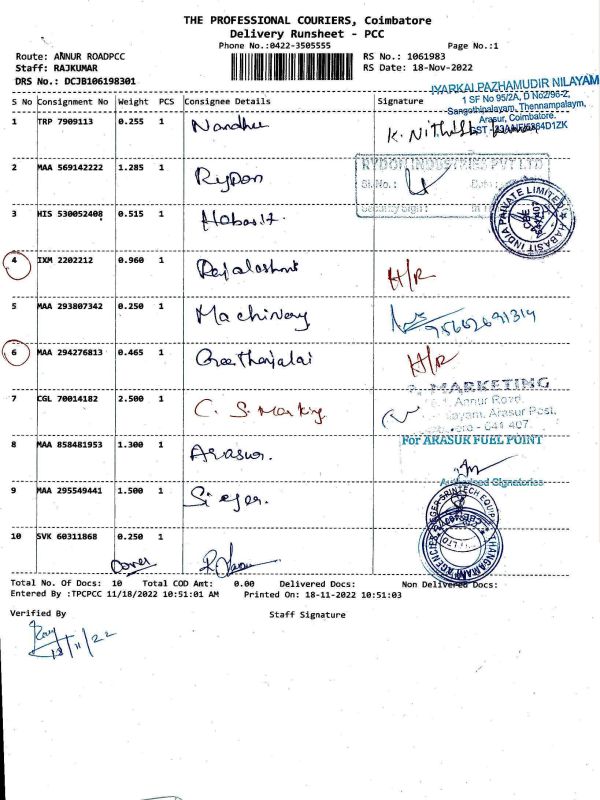 THE PROFESSIONAL COURIERS, Coimbatore
Delivery Runsheet - PCC
Phone No.:0422-3505555
Page No.:1
Route: ANNUR ROADPCC
RS No.: 1061983
Staff: RAJKUMAR
RS Date: 18-Nov-2022
DRS No.: DCJB106198301
IYARKAI PAZHAMUDIR NILAYAM
1 SF No 95/2A, D No2/96-2,
Sangothipalayam, Thennampalayam,
Arasur, Coimbatore.
S No Consignment No Weight PCS Consignee Details Signature
1 TRP 7909113 0.255 1 Nandhu K. Nithish
2 MAA 569142222 1.285 1 Rydon
RYDON INDUSTRIES PVT LTD
Sl.No.:
Security Sign:
3 HIS 530052408 0.515 1 Habasit
HABASIT INDIA PRIVATE LIMITED
CBE
4 IXM 2202212 0.960 1 H/R
5 MAA 293807342 0.250 1 Machinery
6 MAA 294276813 0.465 1 H/R
7 CGL 70014182 2.500 1 C. S. Marking
MARKETING
Annur Road,
Arasur Post,
641 407.
8 MAA 858481953 1.300 1 Arasur
For ARASUR FUEL POINT
Authorised Signatories
9 MAA 295549441 1.500 1
10 SVK 60311868 0.250 1
THANGAMANI AGENCIES
Total No. Of Docs: 10 Total COD Amt: 0.00 Delivered Docs: Non Delivered Docs:
Entered By :TPCPCC 11/18/2022 10:51:01 AM Printed On: 18-11-2022 10:51:03
Verified By
Staff Signature
18/11/22